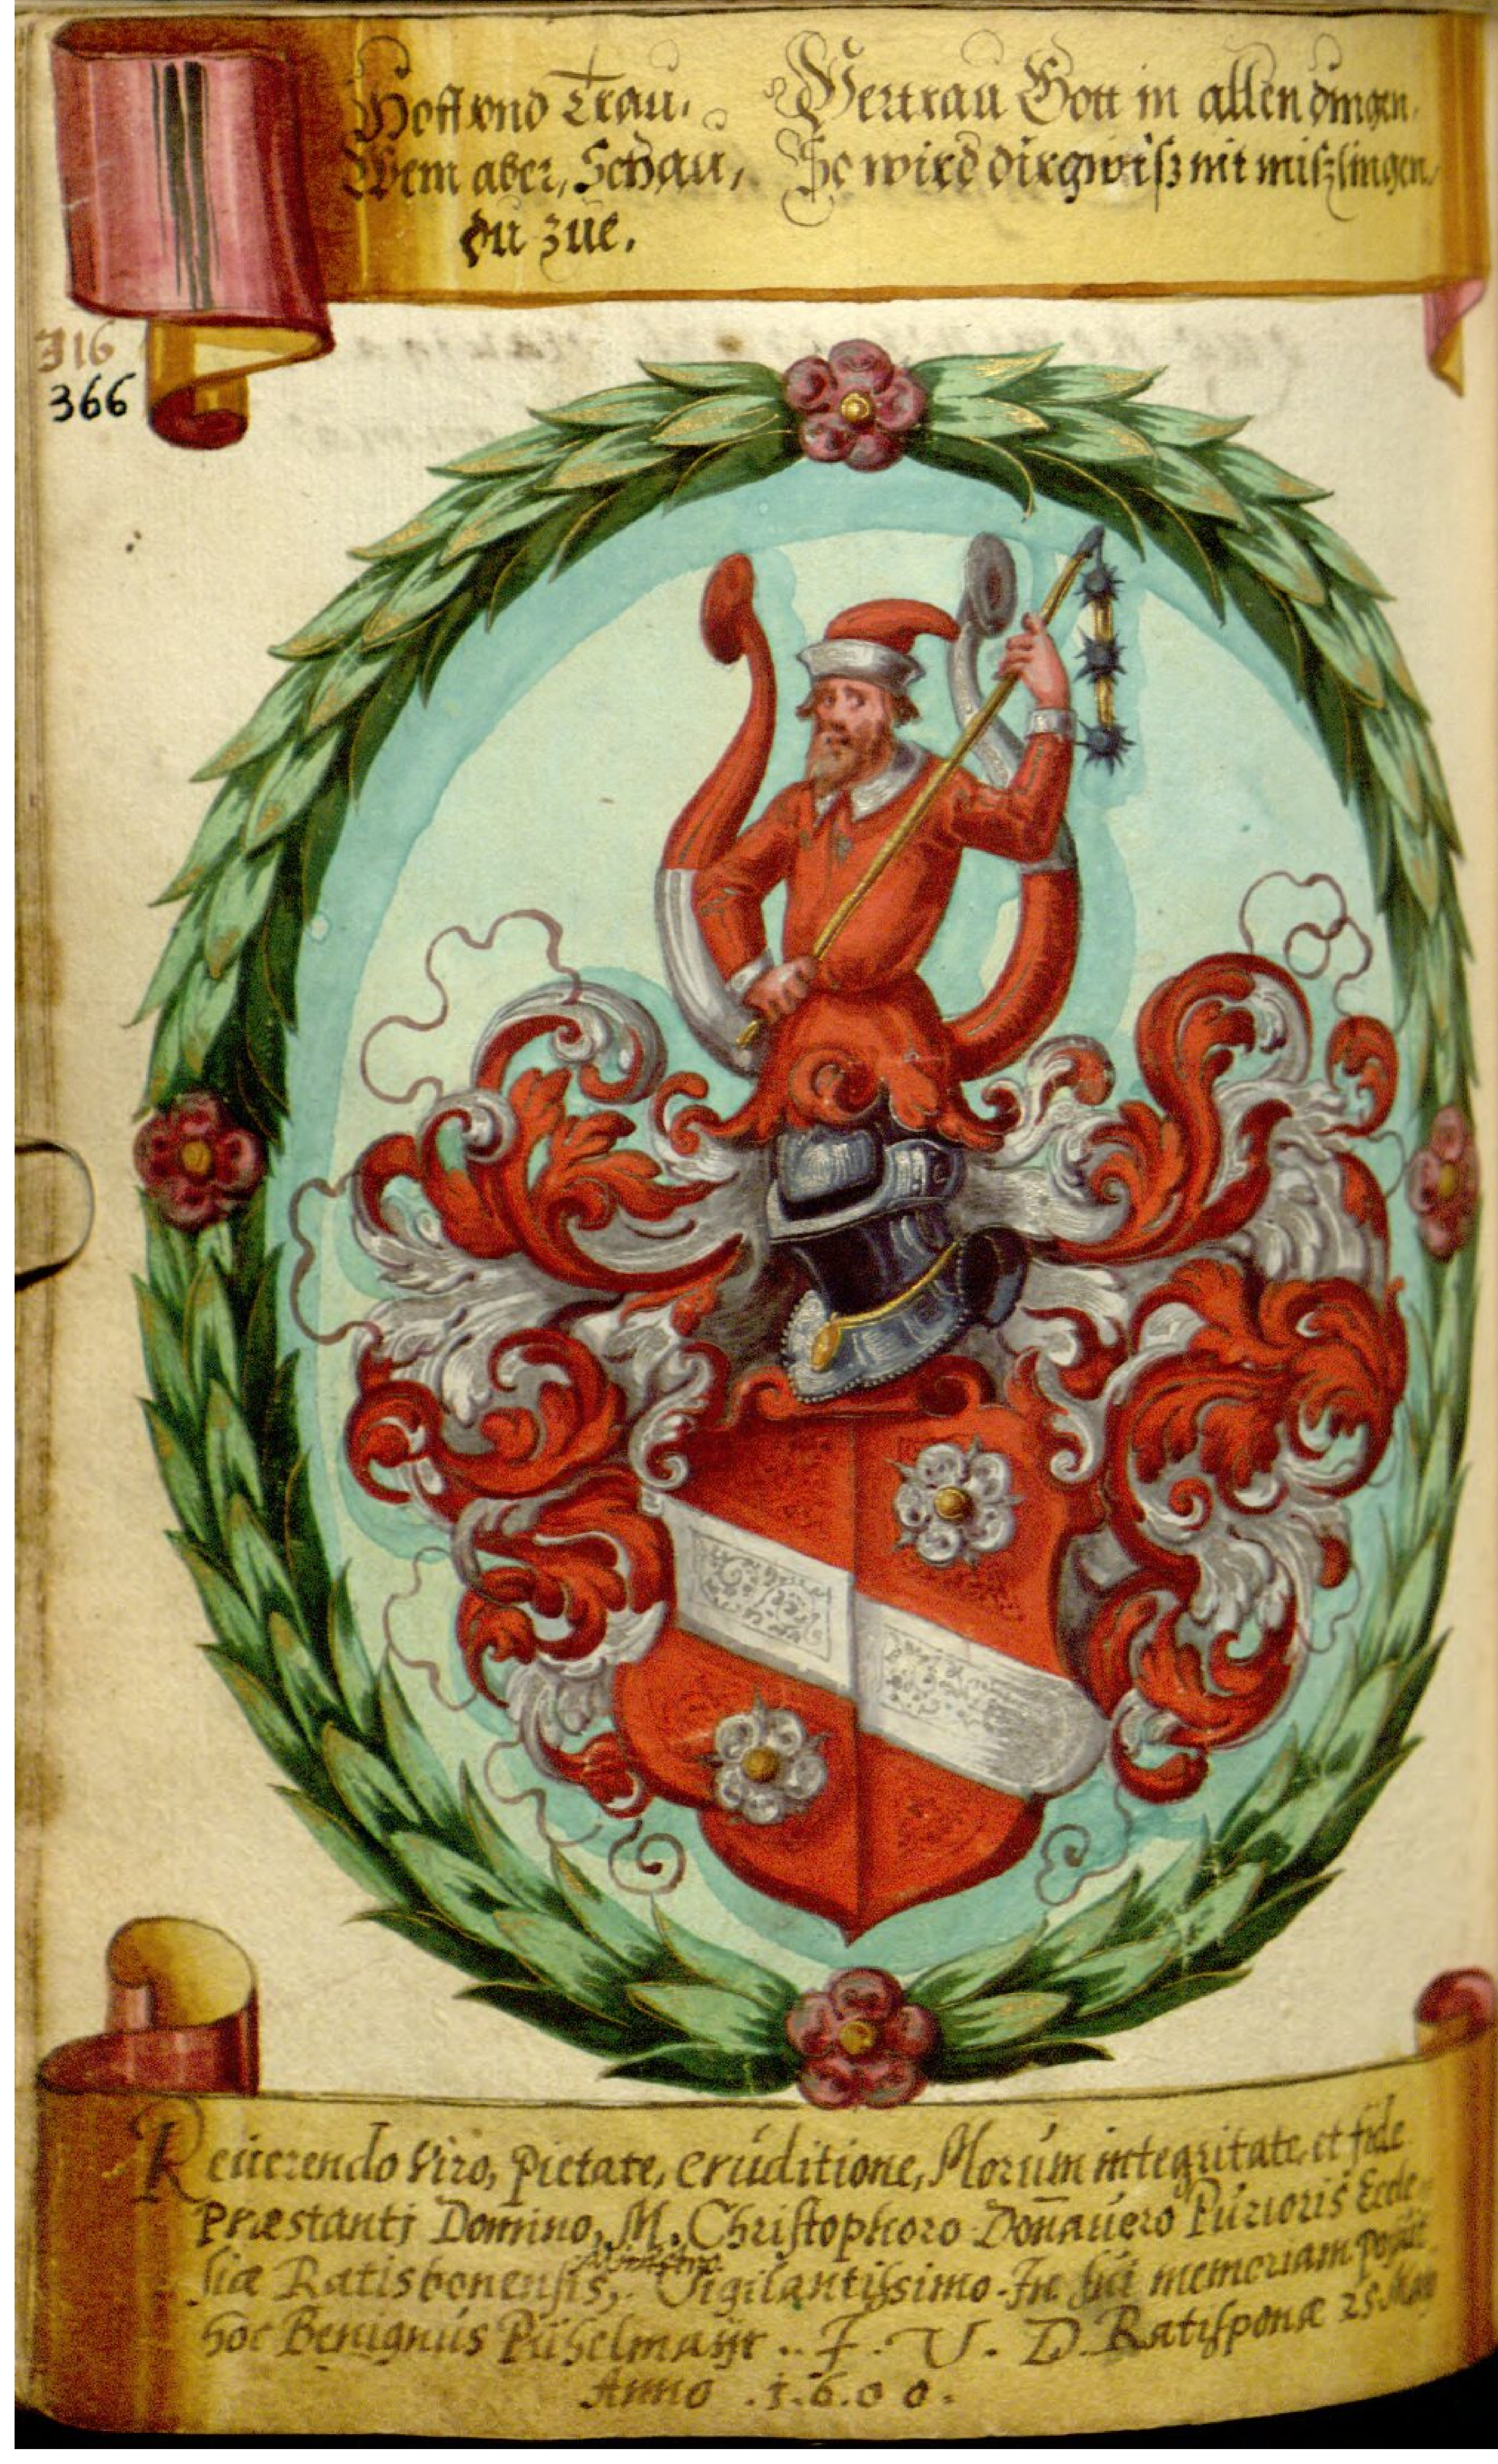 Hoff vnd Trau,
Wem aber, Schau,
du zue.
Vertrau Gott in allen dingen,
So wird dir gwisz nit miszlingen,
316
366
Reuerendo Viro, pietate, eruditione, Morum integritate, et fide
Præstanti Domino, M. Christophoro Donauero Purioris Eccle-
siæ Ratisbonensis, Ministro Vigilantissimo. In sui memoriam posuit
hoc Benignus Pühelmayr .. I. V. D. Ratisponæ 25 May
Anno .1.6.0 0.